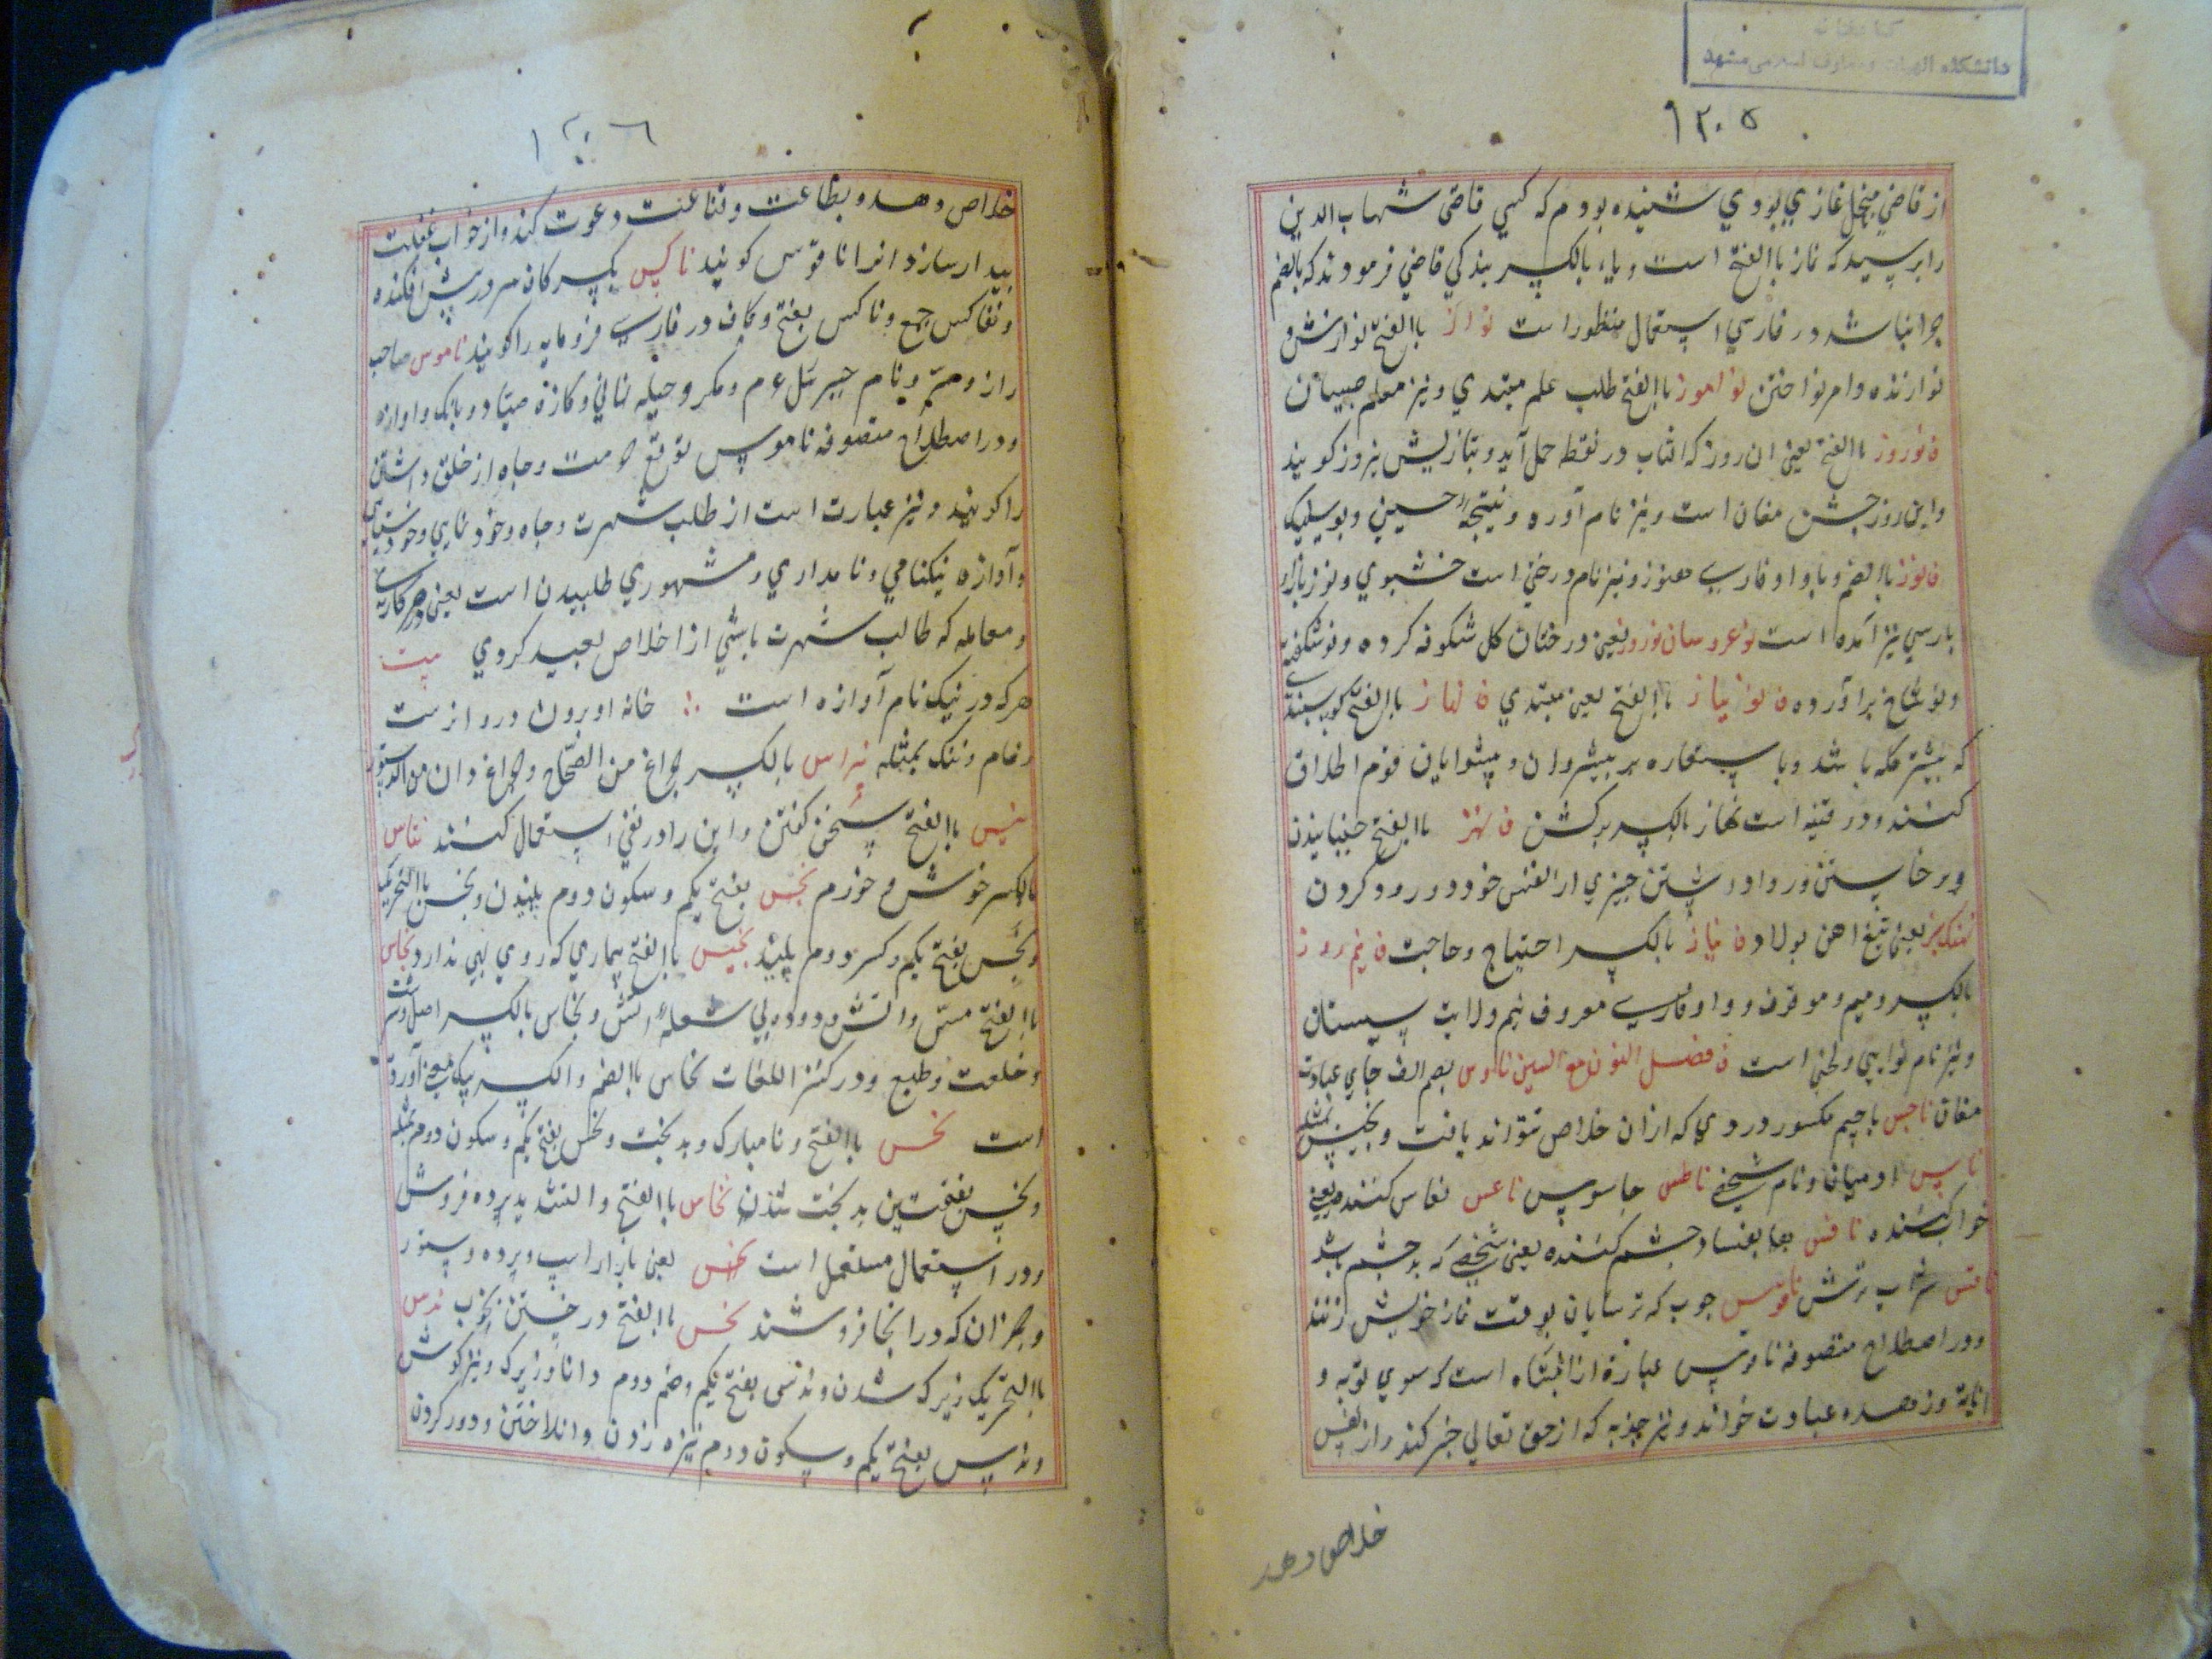 کتابخانه
دانشکده الهیات و معارف اسلامی مشهد
۱۲۰۵
از قاضي غازي بودي شنیده بودم که کسي قاضی شهاب الدین
را پرسید که ناز باالفتح است ویا بالکسر بندکي قاضي فرمودند که بالضم
در فارسي استعمال منظور است نواز باالفتح نوازش و
نوازنده وامر نواختن نواموز باالفتح طلب علم مبتدي ونیز معلم صبیان
ف نوروز باالفتح یعني ان روز که افتاب در نقطه حمل آید وبتازیش نیروز کویند
واین روز جشن مغان است ونیز نام آورده ونتیجه حسیني وبوسلیک
ف نوز باالضم وباواو فارسي هنوز ونیز نام درختي است خشبوي
پارسي نیز آمده است نوعروسان نوروز یعني درختان کل شکوفه کرده ونوشکفته
ونو شاخ برآورده ف نونیاز باالفتح یعني مبتدي ف نهاز باالفتح کوسپند
که پیشتر کله باشد وباستعاره بر پیشروان وپیشوایان قوم اطلاق
کنند ودر قنیه است نهاز بالکسر برکشن ف نهز باالفتح جنبانیدن
وبرخاستن ودور داشتن چیزي از نفس خود ودور کردن
نهنک سبز یعني تیغ اهن پولاد ف نیاز بالکسر احتیاج وحاجت ف نیم روز
بالکسر ومیم وموقوف وواو فارسي معروف نیم ولایت سیستان
ونیز نام نوایي ولحني است ف فصل النون مع السین ناوس بضم الف جاي عبادت
مغان ناجس باجیم مکسور دردي که ازان خلاص نتواند یافت ونجیس بمثله
ناس ادمیان ونام شخصي ناطس جاسوس ناعس نعاس کننده یعني
خواب کننده نافس بفا چشم کننده یعني شخصي که بد چشم باشد
ناقس شراب ترش ناقوس چوب که ترسایان بوقت نماز خویش زنند
ودر اصطلاح متصوفه ناقوس عبارة از انتباه است که سوي توبه و
انابة وزهد وعبادت خواند ونیز جذبه که از حق تعالي خبر کند واز نفس
خلاص دهد
۱۲۰۶
خلاص دهد وبطاعت وقناعت دعوت کند واز خواب غفلت
بیدار سازد انرا ناقوس کویند ناکس بکسر کاف سر در پیش افکنده
ونواکس جمع وناکس بفتح کاف در فارسي فرومایه را کویند ناموس صاحب
راز وسر ونام جبرئیل ءم ومکر وحیله نهاني وکازه صیاد وبانک واوازه
ودر اصطلاح متصوفه ناموس توقع حرمت وجاه از خلق داشتن
را کویند ونیز عبارت است از طلب شهرت وجاه وخودنمایي وخودستایي
وآوازه نیکنامي ونامداري ومشهوري طلبیدن است یعني در هر کاري
ومعامله که طالب شهرت باشي از اخلاص بعید کردي بیت
هرکه در نیک نام آوازه است ∴ خانه او برون دروازست
ونام وننک بمثله نبراس بالکسر چراغ من الصحاح وچراغ دان من الدستور
نبس باالفتح سخن کفتن واین را در نفي استعمال کنند نتاس
بالکسر خوش وخورم نجس بفتح یکم وسکون دوم پلیدن ونجس باالتحریک
ونجس بفتح یکم وکسر دوم پلید نجیس باالفتح بیماري که روي بهي ندارد نحاس
باالفتح مس واتش ودود بي شعله اتش ونحاس بالکسر اصل وسرشت
وخلعت وطبع ودر کنز اللغات نحاس باالضم والکسر بیک معني آورده
است نحس باالفتح ونامبارک وبدبخت ونحس بفتح یکم وسکون دوم بمثله
ونحس بفتحتین بدبخت شدن نخاس باالفتح والتشدید برده فروش
ودر استعمال مستعمل است نخس یعني بازار اسپ وبرده وستور
وجز ان که در انجا فروشند نخس باالفتح درخستن بچوب ندس
باالتحریک زیرک شدن وندس بفتح یکم وضم دوم دانا وزیرک ونیز کوش
وندس بفتح یکم وسکون دوم نیزه زدن وانداختن ودور کردن